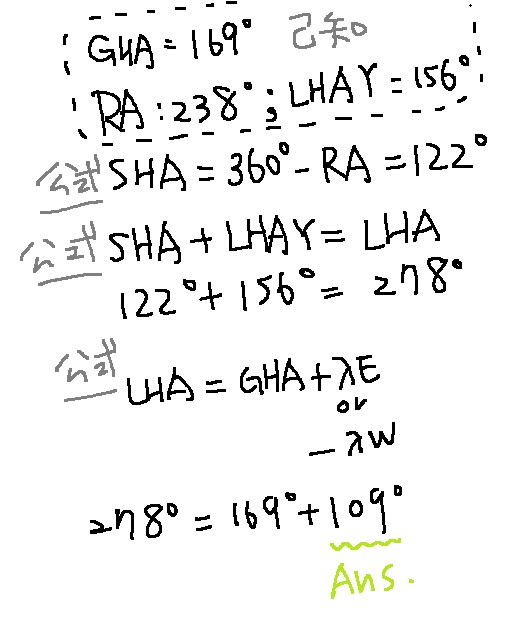 GHA = 169° 已知
RA : 238° ; LHAϒ = 156°
公式 SHA = 360° - RA = 122°
公式 SHA + LHAϒ = LHA
122° + 156° = 278°
公式 LHA = GHA + λE
or
- λW
278° = 169° + 109°
Ans.